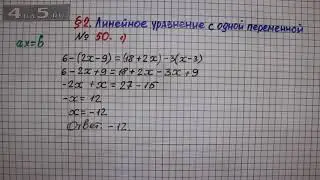 4na5.ru
§2. Линейное уравнение с одной переменной
ax=b
№ 50. 1)
6-(2x-9)=(18+2x)-3(x-3)
6-2x+9=18+2x-3x+9
-2x+x=27-15
-x=12
x=-12
Ответ: -12.